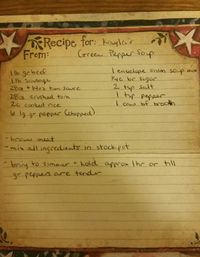 Recipe for: Kaylie's
From: Green Pepper Soup
1 lb gr beef
1 lb sausage
28oz + 14oz tom sauce
28oz crushed tom
2c cooked rice
6 lg gr pepper (chopped)
1 envelope onion soup mix
¼c br sugar
2 tsp salt
1 tsp pepper
1 can of broth
- brown meat
- mix all ingredients in stock pot
- bring to simmer + hold approx 1 hr or till
gr peppers are tender